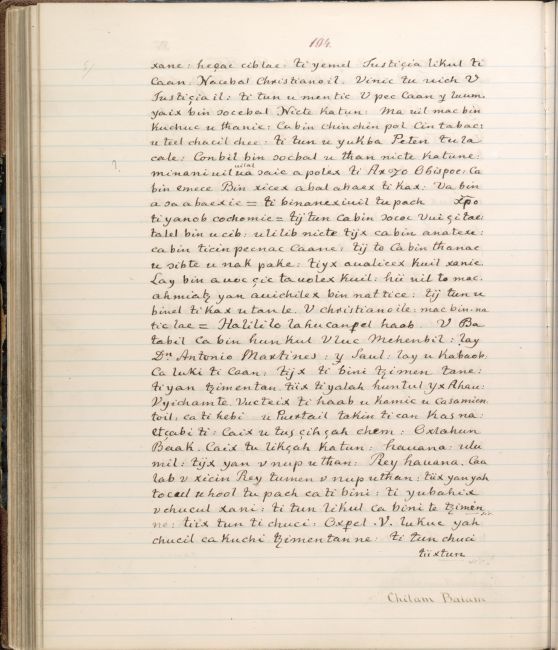 104.
xane: heçac ciblac: ti yemel Justiçia likul ti
Caan. Nacebal Christianoil. Vinic tu uich V
Justiçiail: ti tun u mentic V pec Caan y luum.
yaix bin socebal Nicte Katun: Ma uil mac bin
kuchuc u thanic: Cabin chinchin pol Cin tabac:
u teel chacil chee: ti tun u yukba Peten tu la
cale: Conbil bin socbal u than nicte Katune:
minani uil uilal ua saic a polex ti Ax yo Obispoe: Ca
bin emece Bin xicex a balabaex ti kax: Va bin
a sa abaexic = ti binanexiuil tu pach xpo
ti yanob cochomie = tij tun cabin socoe Vuiçitae:
talel bin u cib: ulilib nicte tijx cabin anatex:
cabin ticin pecnac Caane: tij to Cabin thanac
u sibte u nak pake: tiyx aualicex kuil xanie
Lay bin a uocçic ta uolex Kuil: hii uil to mac.
ahmiatz yan auichilex bin nattice: tij tun u
binel ti Kax u tan le. V christianoile: mac bin na
tic lae = Halilil o lahucanpel haab. V Ba
tabil ca bin hun kul V luc Mehenbil: lay
Dn Antonio Martines: y Saul: lay u Kabaob.
Ca luki ti Caan: tijx ti bini tzimen tane:
ti yan tzimentan tiix ti yalah huntul yx Ahau:
Vyichamte. Vucteix ti haab u kamic u Casamien
toil: ca ti hebi u Puertail takin ti can Kasna:
etçabi ti: Caix u tus çihçah chem: Oxlahun
Baak. Caix tu likçah katun: hauana: ulu
mil: tijx yan v nup u than: Rey hauana. Caa
lab v xicin Rey tumen v nup u than: tiix yan yah
tocul u hool tu pach cati bini: ti yubahix
v chucul xani: ti tun likul ca bini te tzimen
ne: tiix tun ti chuci: Oxpel .V. lukuc yah
chucil ca kuchi tzimentanne: ti tun chuci
tiixtun
Chilam Balam